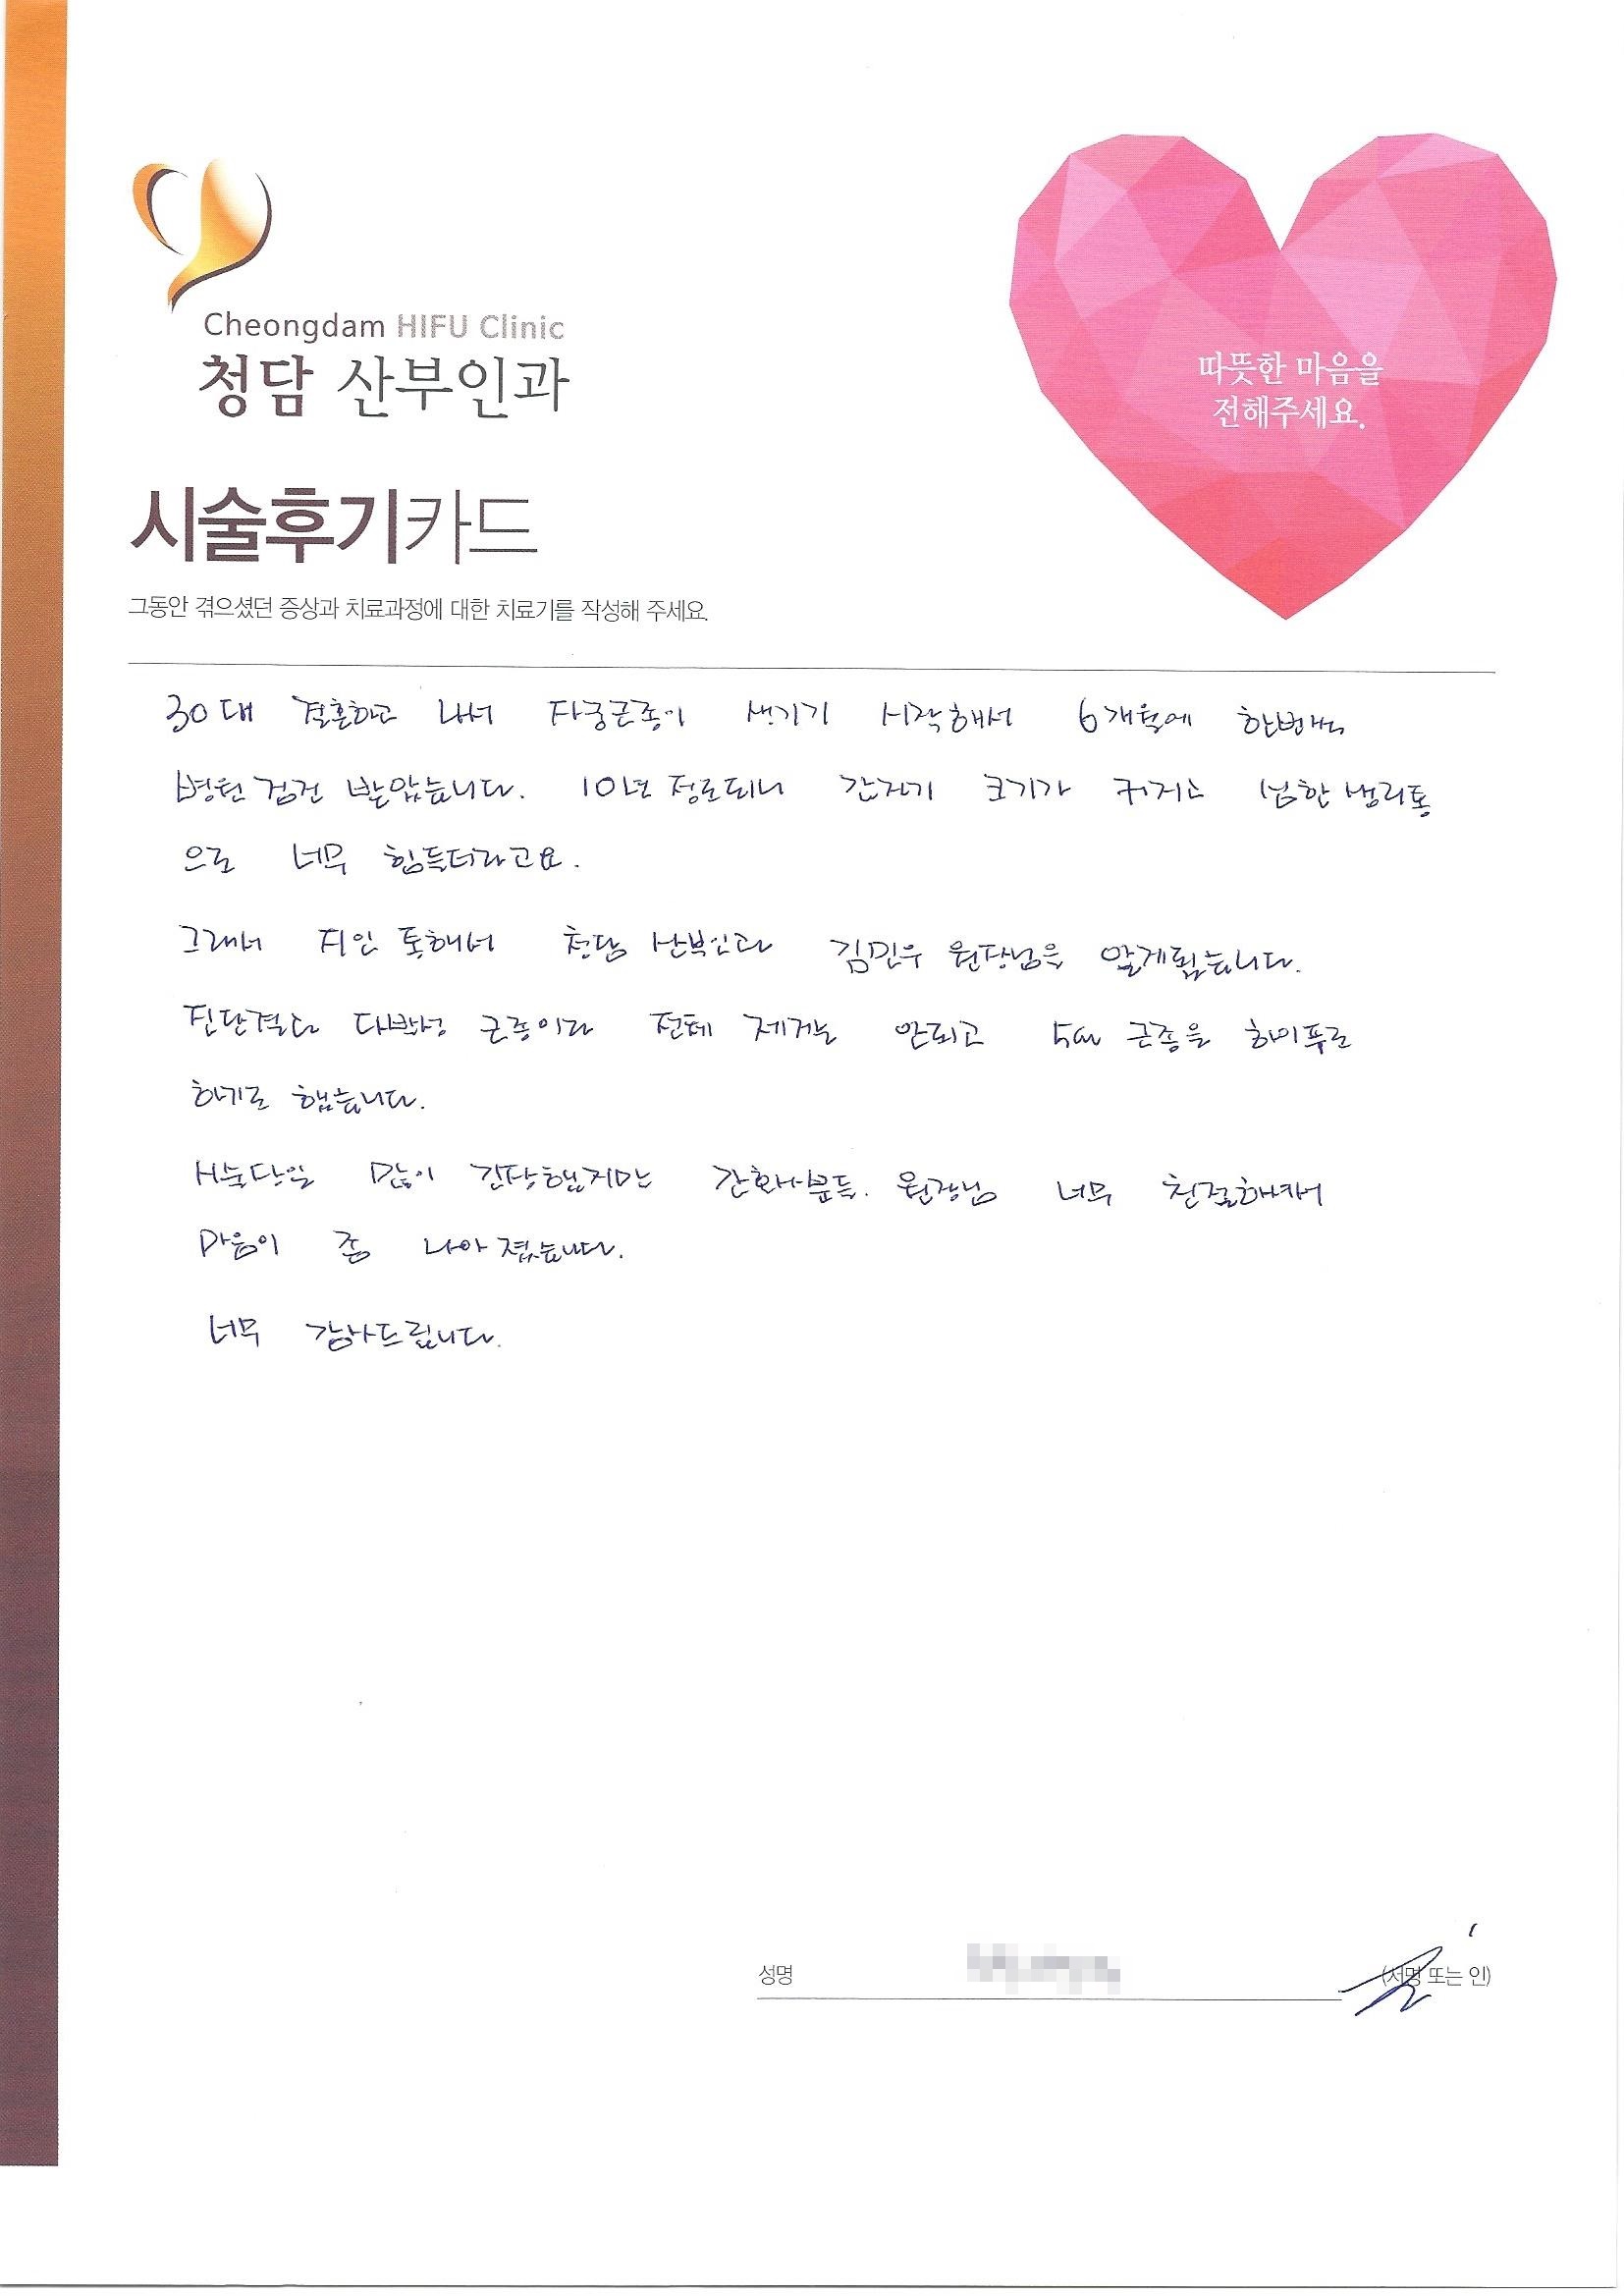 Cheongdam HIFU Clinic
청담 산부인과
따뜻한 마음을
전해주세요.
시술후기카드
그동안 겪으셨던 증상과 치료과정에 대한 치료기를 작성해 주세요.
30대 결혼하고 나서 자궁근종이 생기기 시작해서 6개월에 한번씩
병원 검진 받았습니다. 10년 정도되니 갑자기 크기가 커지고 심한 생리통
으로 너무 힘들더라고요.
그래서 지인 통해서 청담 산부인과 김민우 원장님을 알게됬습니다.
진단결과 다발성 근종이라 전체 제거는 안되고 5cm 근종을 하이푸로
하기로 했습니다.
시술당일 많이 긴장했지만 간호사분들. 원장님 너무 친절하셔서
마음이 좀 나아졌습니다.
너무 감사드립니다.
성명 (서명 또는 인)